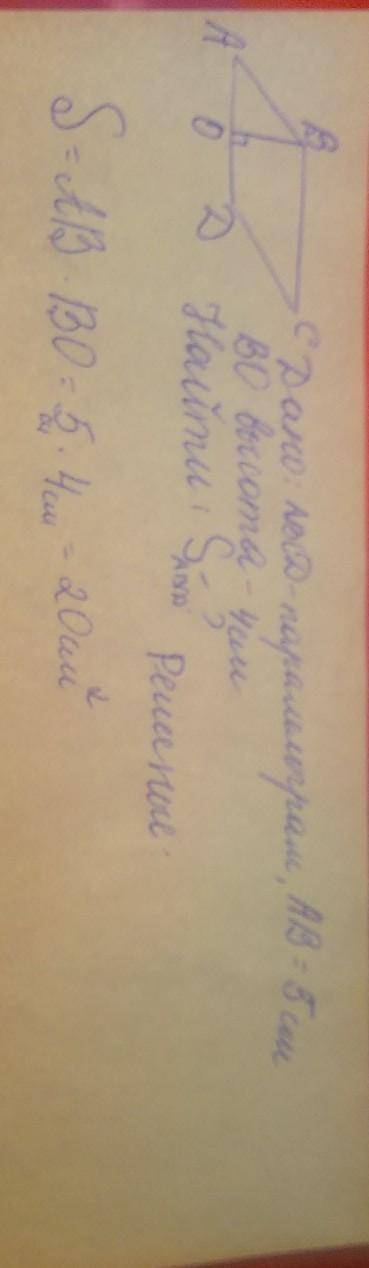 A
B
C
O
D
Дано: ABCD-паралелограм, AB = 5 см
BO высота - 4см
Найти: S ABCD - ?
Решение.
S = AB · BO = 5 см · 4 см = 20см²